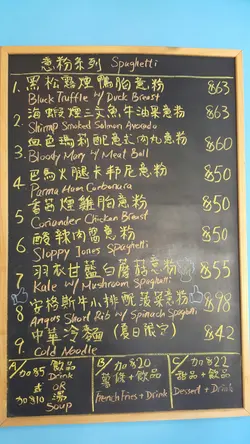 意粉系列 Spaghetti
1. 黑松露煙鴨胸意粉 $63
Black Truffle w/ Duck Breast
2. 海蝦煙三文魚牛油果意粉 $63
Shrimp Smoked Salmon Avocado
3. 血色瑪利配意式肉丸意粉 $60
Bloody Mary w/ Meat Ball
4. 巴馬火腿卡邦尼意粉 $50
Parma Ham Carbonara
5. 香茜煙雞胸意粉 $50
Coriander Chicken Breast
6. 酸辣肉醬意粉 $50
Sloppy Jones Spaghetti
7. 羽衣甘藍白蘑菇意粉 $55
Kale w/ Mushroom Spaghetti
8. 安格斯牛小排配菠菜意粉 $98
Angus Short Rib w/ Spinach Spaghetti
9. 中華冷麵 (夏日限定) $42
Cold Noodle
A/ 加$5 飲品
Drink
或 OR
加$10 湯
Soup
B/ 加$20
薯條+飲品
French Fries + Drink
C/ 加$22
甜品+飲品
Dessert + Drink